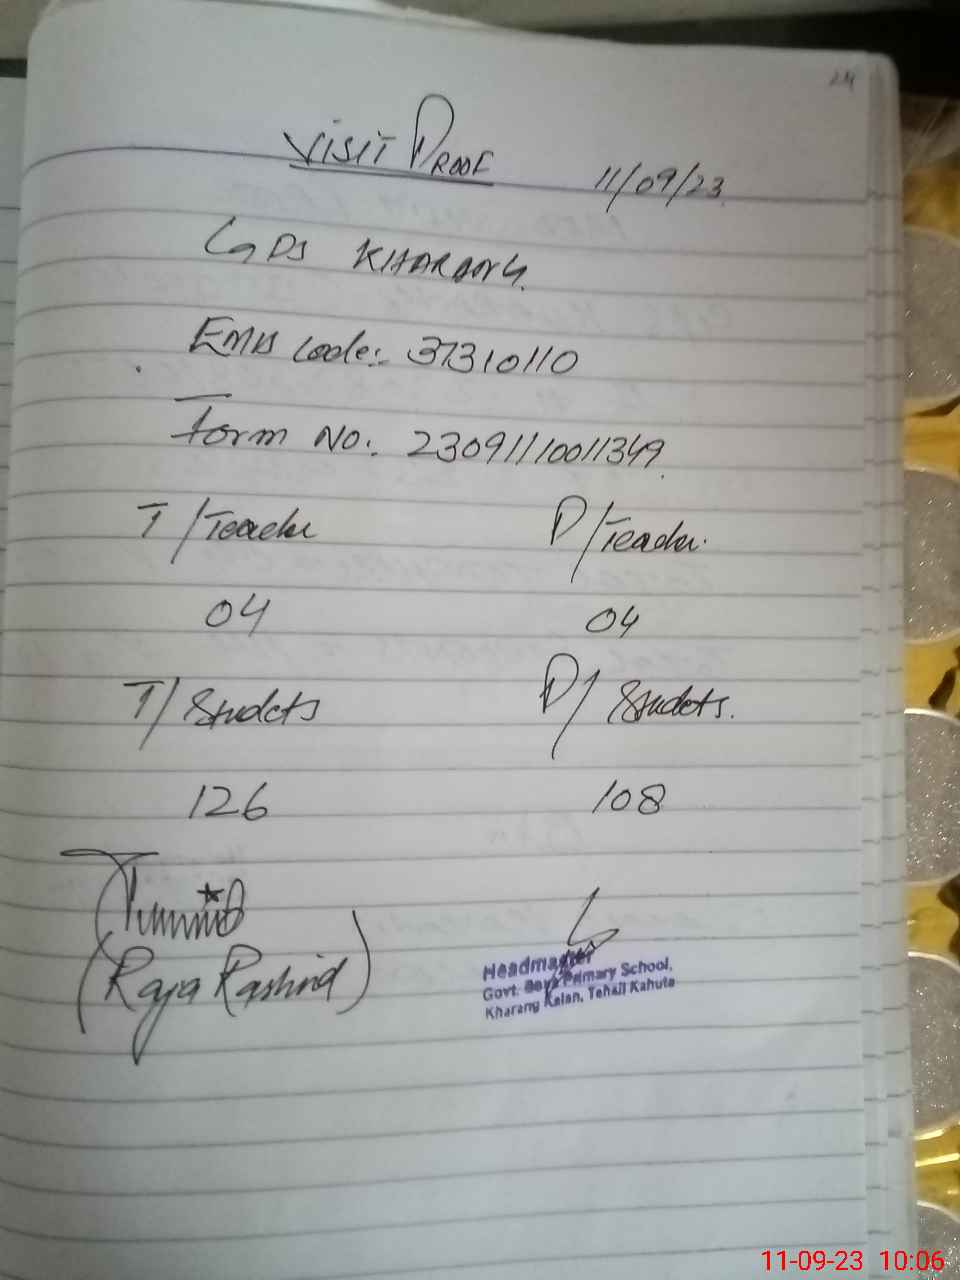 24
VISIT PROOF 11/09/23
GPS KHARANG.
EMIS Code:- 37310110
Form NO: 23091110011349.
T/Teacher P/Teacher.
04 04
T/Studets P/Studets.
126 108
(Raja Rashid)
Headmaster
Govt. Boys Primary School,
Kharang Kalan, Tehsil Kahuta
11-09-23 10:06